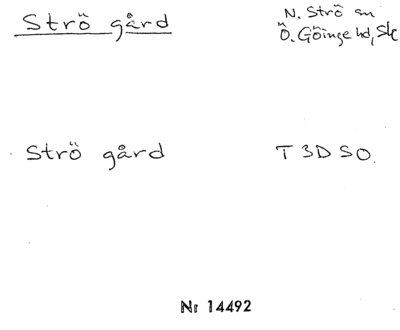 Strö gård
N. Strö sn
Ö. Göinge hd, Sk
Strö gård
T 3D SO.
Nr 14492